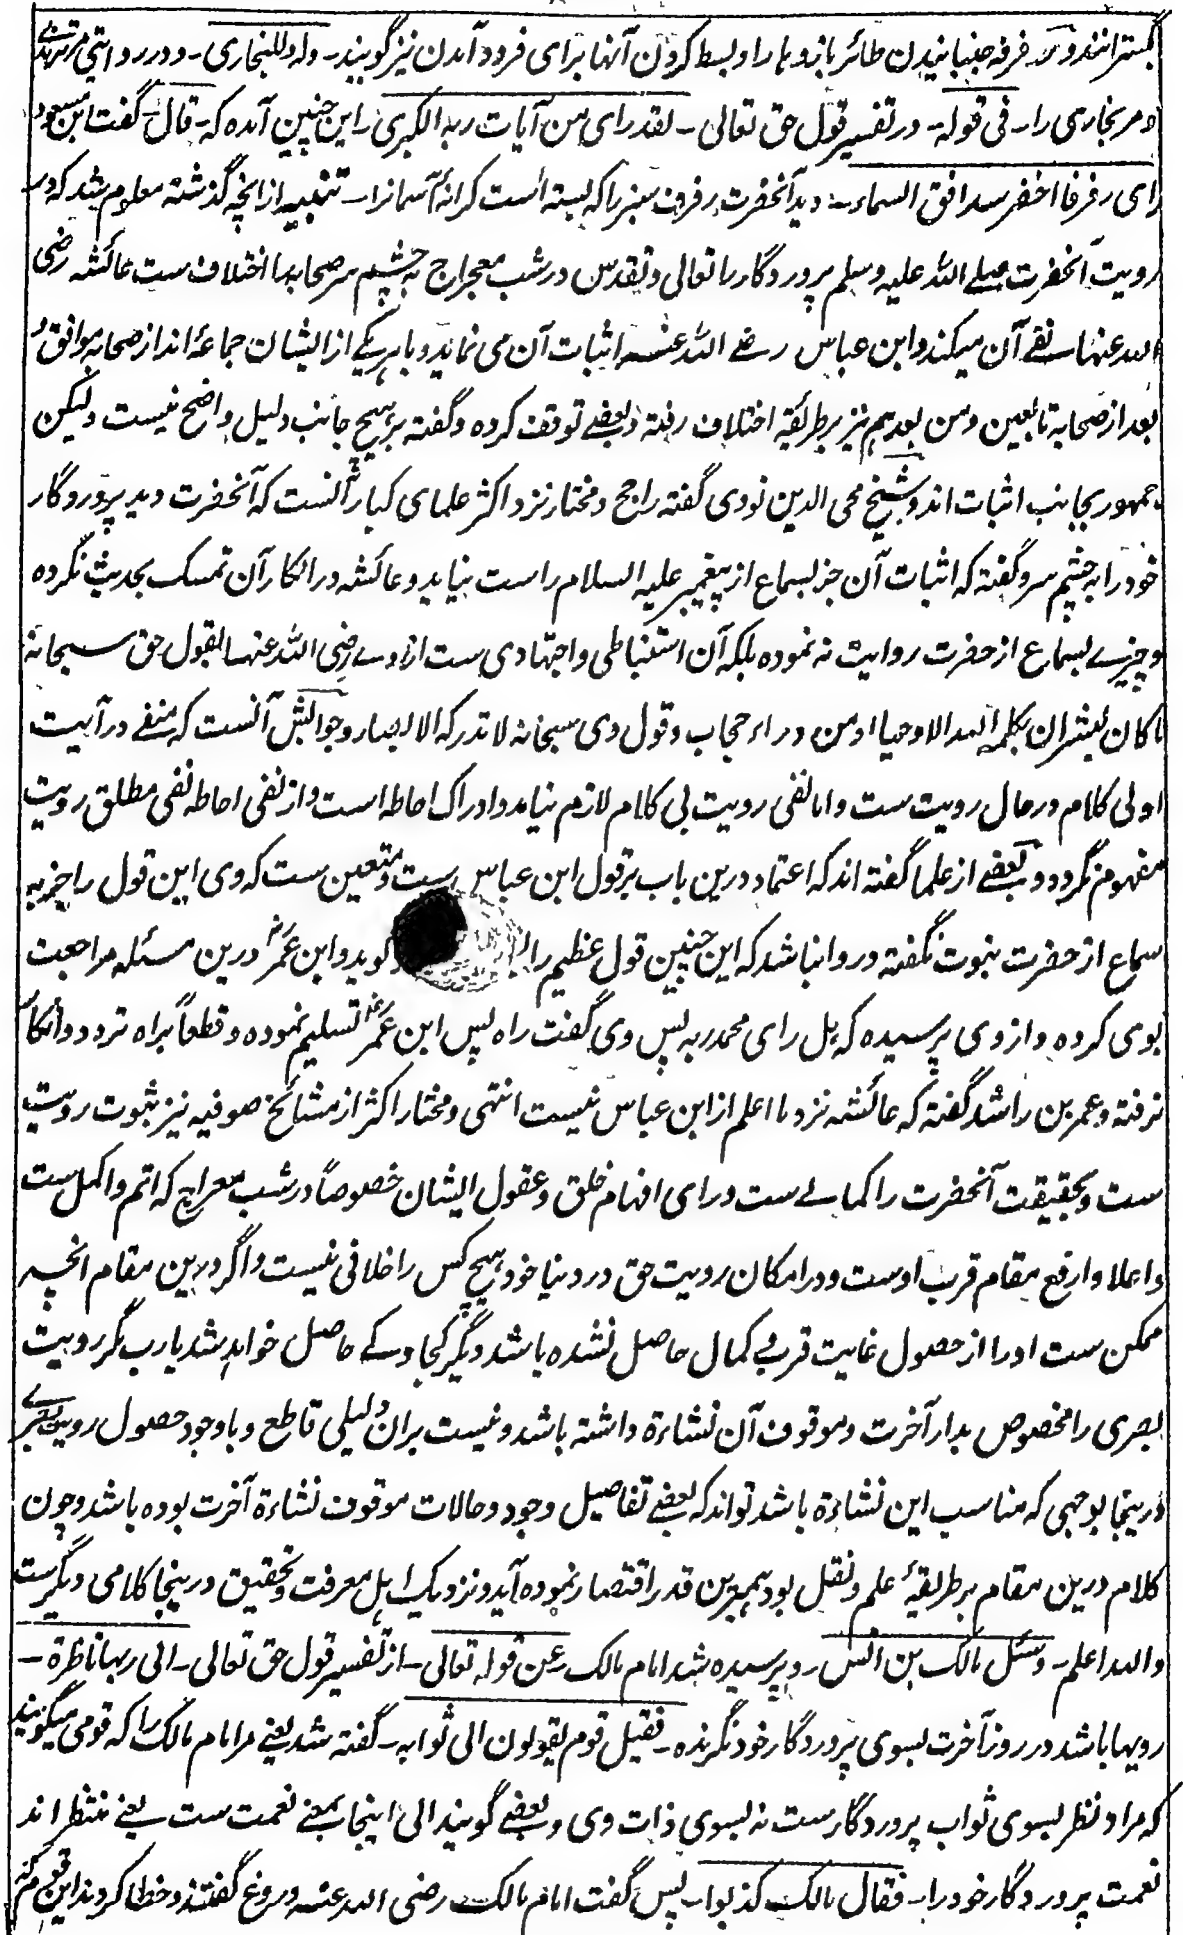 گسترانند و رفرفه جنبانیدن طائر بازوها را و بسط کردن آنها برای فرود آمدن نیز گویند۔ وله وللبخاری۔ و در روایتی مر ترمذی
و مر بخاری را۔ فی قوله۔ در تفسیر قول حق تعالی۔ لقد رای من آیات ربه الکبری۔ این چنین آمده که۔ قال۔ گفت ابن مسعود
رای رفرفا اخضر سد افق السماء۔ دید آنحضرت رفرف سبز را که بسته است کرانه آسمانرا۔ تنبیه از انچه گذشته معلوم شد که در
رویت آنحضرت صلے اللہ علیه وسلم پروردگار را تعالی و تقدس در شب معراج به چشم سر صحابه را اختلاف ست عائشه رضی
اللہ عنها نفے آن میکند و ابن عباس رضے اللہ عنه اثبات آن می نماید و با هر یکے از ایشان جماعۀ اند از صحابه موافق و
بعد از صحابه تابعین و من بعدهم نیز بر طریقۀ اختلاف رفته و بعضے توقف کرده و گفته بر هیچ جانب دلیل واضح نیست و لیکن
جمهور بجانب اثبات اند و شیخ محی الدین نووی گفته راجح و مختار نزد اکثر علمای کبار آنست که آنحضرت دید پروردگار
خود را به چشم سر و گفته که اثبات آن جز بسماع از پیغمبر علیه السلام راست نیاید و عائشه در انکار آن تمسک بحدیث نکرده
و چیزے بسماع از حضرت روایت نه نموده بلکه آن استنباطی و اجتهادی ست از وے رضی اللہ عنها بقول حق سبحانه
ما کان لبشر ان یکلمه اللہ الا وحیا او من وراء حجاب و قول وی سبحانه لا تدرکه الابصار و جوابش آنست که منفے در آیت
اولی کلام در حال رویت ست و اما نفی رویت بی کلام لازم نیاید و ادراک احاطه است و از نفی احاطه نفی مطلق رویت
مفهوم نگردد و بعضے از علما گفته اند که اعتماد درین باب بر قول ابن عباس ست و متعین ست که وی این قول را جز به
سماع از حضرت نبوت نگفته و روا نباشد که این چنین قول عظیم را گوید و ابن عمر درین مسئله مراجعت
بوی کرده و از وی پرسیده که هل رای محمد ربه پس وی گفت راه پس ابن عمر تسلیم نموده و قطعاً براه تردد و انکار
نرفته و عمر بن راشد گفته که عائشه نزد ما اعلم از ابن عباس نیست انتهی و مختار اکثر از مشائخ صوفیه نیز ثبوت رویت
ست و بحقیقت آنحضرت را کمالے ست ورای افهام خلق و عقول ایشان خصوصاً در شب معراج که اتم و اکمل ست
و اعلا و ارفع مقام قرب اوست و در امکان رویت حق در دنیا خود هیچ کس را خلافی نیست و اگر درین مقام انچه
ممکن ست او را از حصول غایت قرب و کمال حاصل نشده باشد دیگر کجا و کے حاصل خواهد شد یا رب مگر رویت
بصری را مخصوص بدار آخرت و موقوف آن نشاءة داشته باشد و نیست بران دلیلی قاطع و با وجود حصول رویت بصرے
درینجا بوجهی که مناسب این نشاءة باشد تواند که بعضے تفاصیل وجود و حالات موقوف نشاءة آخرت بوده باشد و چون
کلام درین مقام بر طریقۀ علم و نقل بود بهمین قدر اقتصار نموده آید و نزدیک اهل معرفت و تحقیق درینجا کلامی دیگرست
و اللہ اعلم۔ وسئل مالک بن انس۔ و پرسیده شد امام مالک عن قوله تعالی۔ از تفسیر قول حق تعالی۔ الی ربها ناظرة۔
رویها باشد در روز آخرت بسوی پروردگار خود نگرنده۔ فقیل قوم یقولون الی ثوابه۔ گفته شد یعنے مر امام مالک را که قومی میگویند
که مراد نظر بسوی ثواب پروردگار ست نه بسوی ذات وی و بعضے گویند الی اینجا بمعنے نعمت ست یعنے منتظر اند
نعمت پروردگار خود را۔ فقال مالک کذبوا۔ پس گفت امام مالک رضی اللہ عنه دروغ گفتند و خطا کردند این قوم که